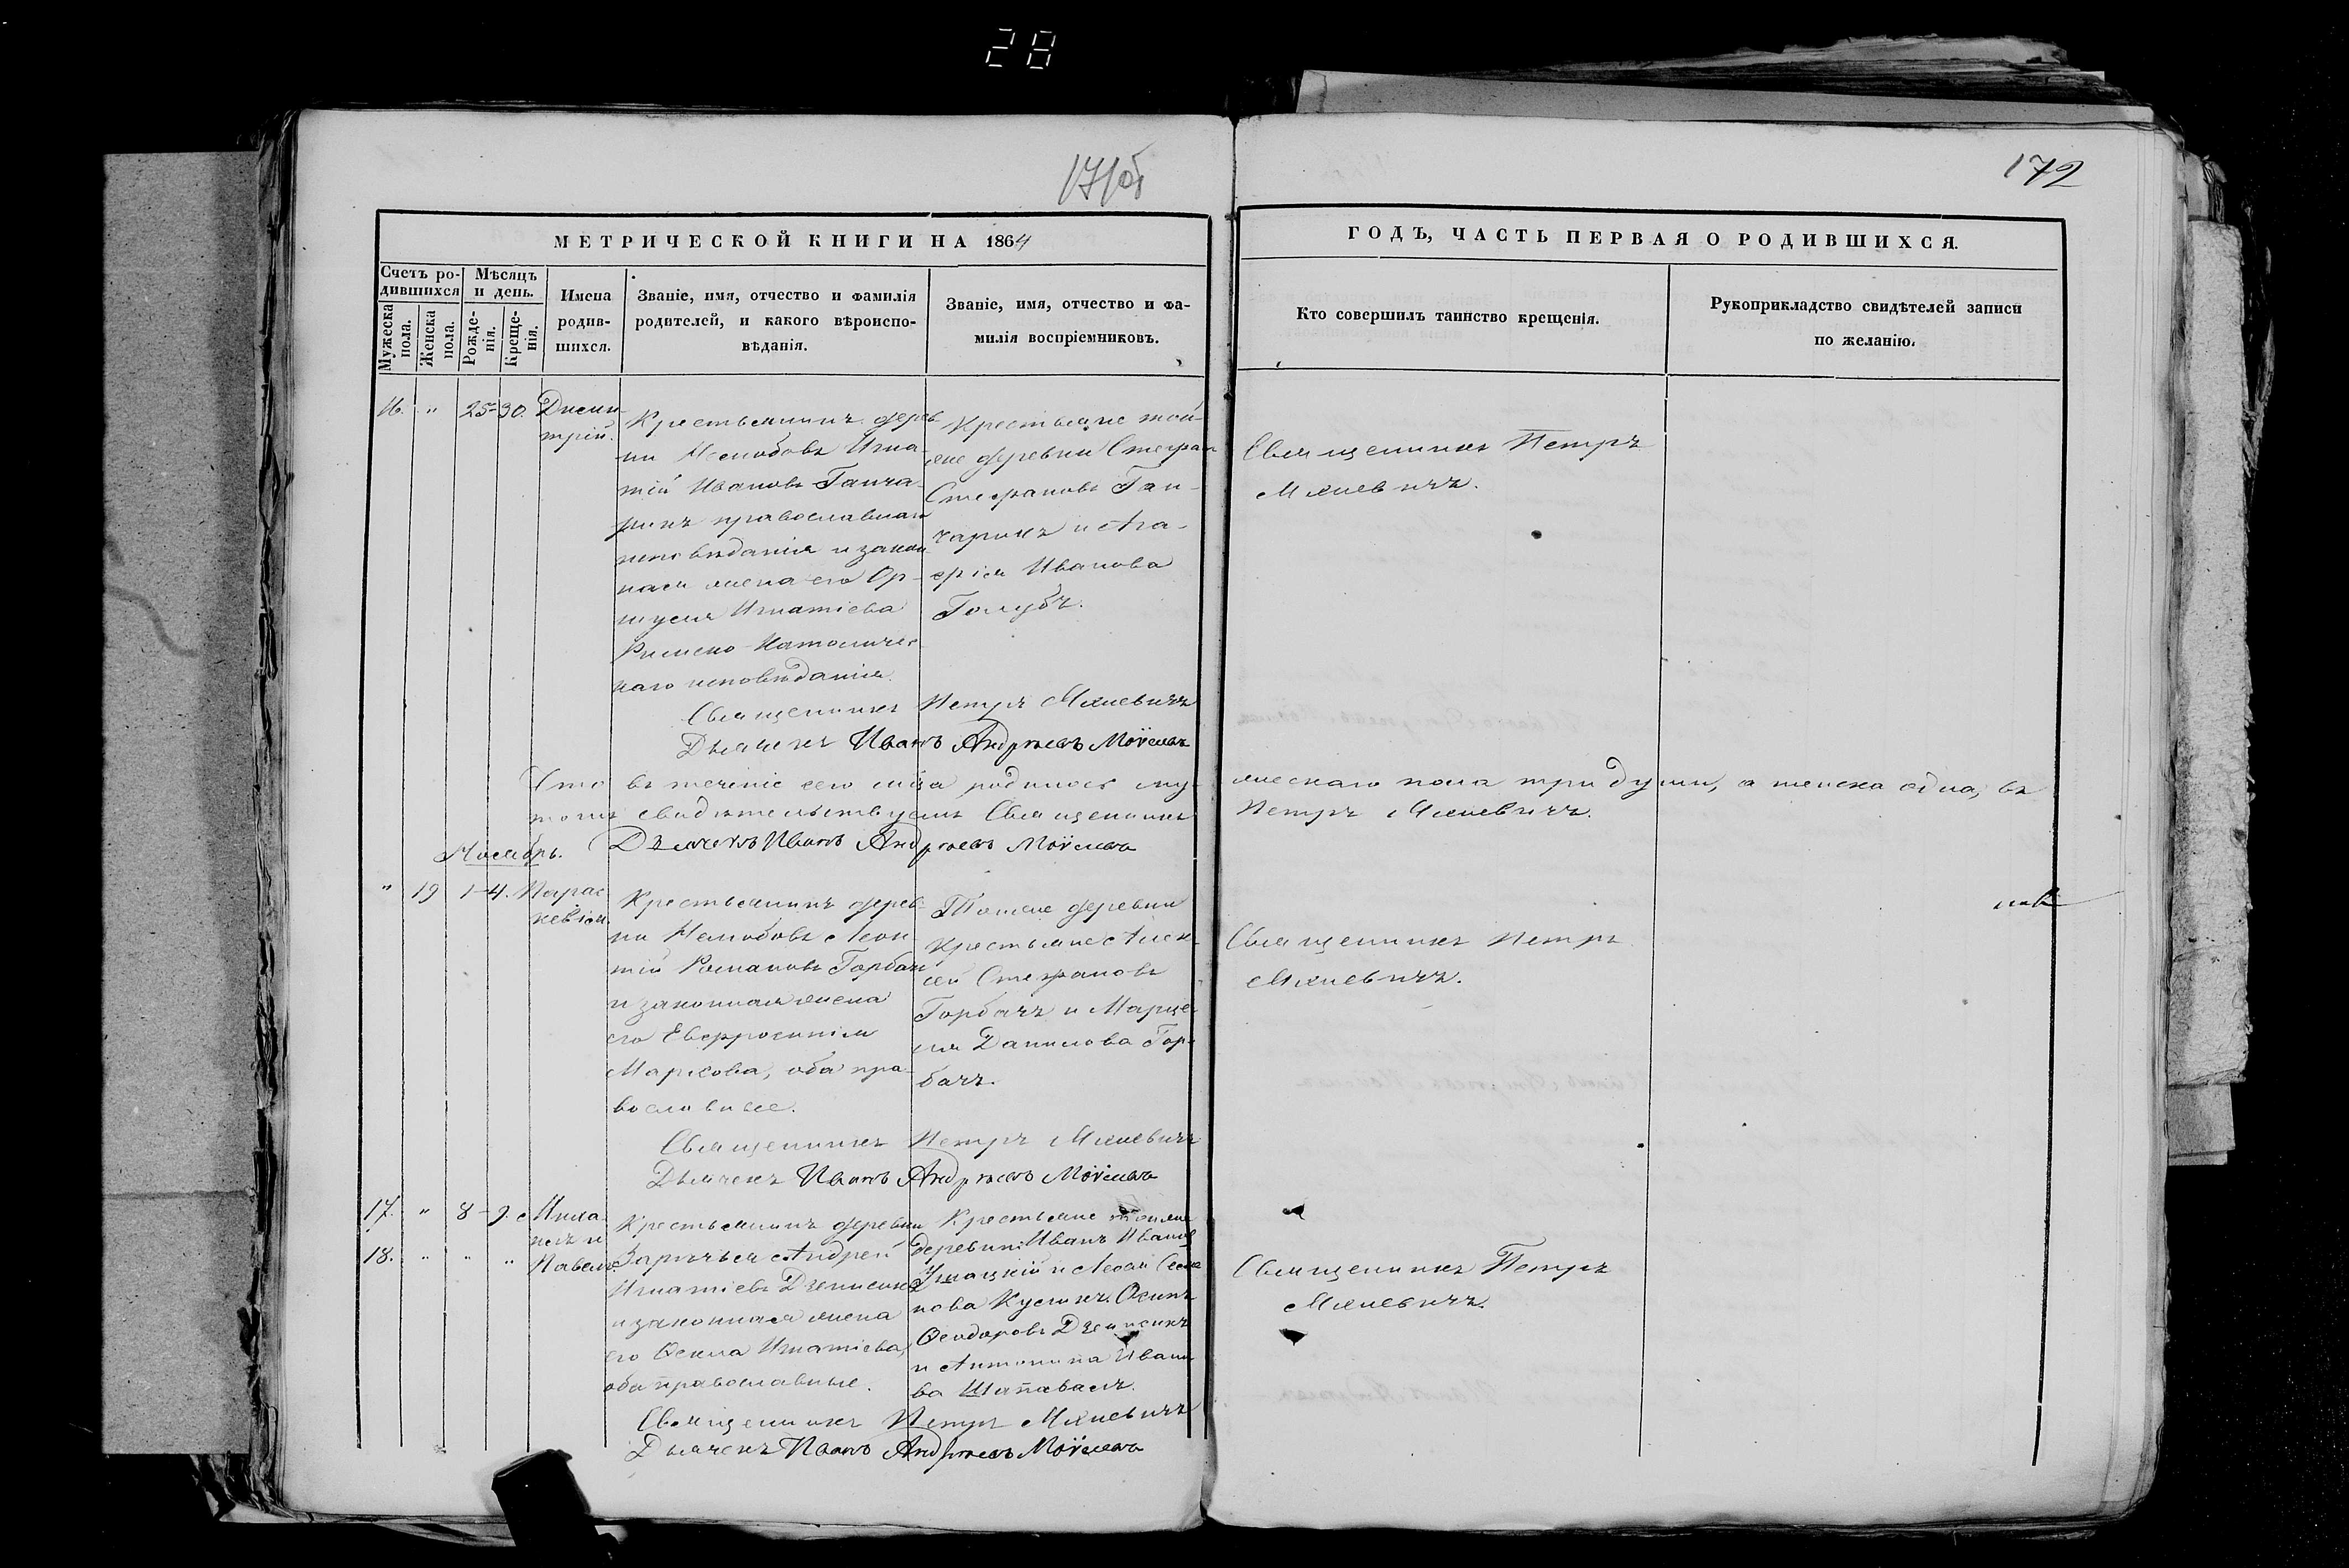 28
171об
172
МЕТРИЧЕСКОЙ КНИГИ НА 1864
ГОДЪ, ЧАСТЬ ПЕРВАЯ О РОДИВШИХСЯ.
Счетъ ро-
дившихся
Мужеска
пола.
Женска
пола.
Мѣсяцъ
и день.
Рожде-
нія.
Креще-
нія.
Имена
родив-
шихся.
Званіе, имя, отчество и фамилія
родителей, и какого вѣроиспо-
вѣданія.
Званіе, имя, отчество и фа-
милія воспріемниковъ.
Кто совершилъ таинство крещенія.
Рукоприкладство свидѣтелей записи
по желанію.
16. " 25 30.
Дими-
трій.
Крестьянинъ дерев-
ни Игна-
тій Ивановъ Ганча-
рикъ православнаго
исповѣданія и закон-
ная жена его Ор-
шуля Игнатіева
Римско-Католичес-
каго исповѣданія.
Крестьяне той-
же деревни Стефан
Стефановъ Ган-
чарикъ и Ага-
фія Иванова
Голубъ.
Священникъ Петръ
Михневичъ.
Священникъ Петръ Михневичъ
Дьячекъ Иванъ Андреевъ
Что въ теченіе сего мѣсяца родилось му-
жескаго пола три души, а женска одна, въ
томъ свидѣтельствуемъ Священникъ
Петръ Михневичъ.
Дьячекъ Иванъ Андреевъ
Ноябрь.
" 19 1-4.
Парас-
кевія.
Крестьянинъ дерев-
ни Леон-
тій Романовъ Горбачъ
и законная жена
его Евфросинія
Маркова, оба пра-
вославные.
Тойже деревни
Крестьяне Алек-
сѣй Стефановъ
Горбачъ и Марце-
ля Данилова Гор-
бачъ.
Священникъ Петръ
Михневичъ.
Священникъ Петръ Михневичъ
Дьячекъ Иванъ Андреевъ
17. " 8-9.
18. " " "
Миха-
илъ и
Павелъ.
Крестьянинъ деревни
Зарѣчья Андрей
Игнатіевъ Дзенисикъ
и законная жена
его Ѳекла Игнатіева,
оба православные.
Крестьяне тойже
деревни: Иванъ Иванов
и
нова Осипъ
Ѳеодоровъ Дзенисикъ
и Антонина Ивано-
ва Шапавалъ.
Священникъ Петръ
Михневичъ.
Священникъ Петръ Михневичъ
Дьячекъ Иванъ Андреевъ